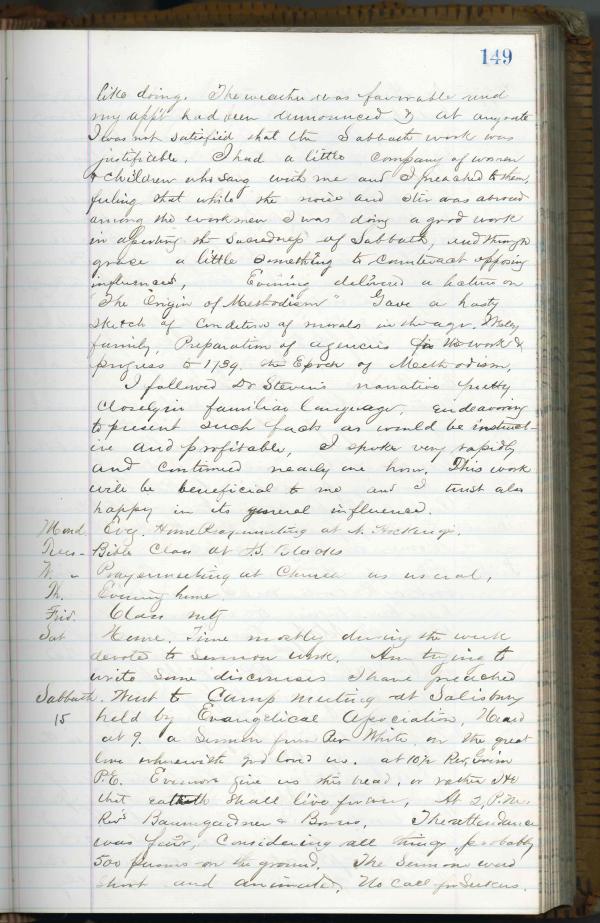 149
like doing. The weather was favorable and
my appt had been announced & at any rate
I was not satisfied that the Sabbath work was
justifiable. I had a little company of women
& children who sang with me and I preached to them,
feeling that while the noise and stir was abroad
among the workmen I was doing a good work
in asserting the Sacredness of Sabbath, and through
grace a little something to counteract opposing
influences, Evening delivered a lecture on
"The Origin of Methodism" Gave a hasty
sketch of Condition of morals in the age. Wesley
family, Preparation of agencies for the work &
progress to 1739. the Epoch of Methodism,
I followed Dr Stevens narrative pretty
closely in familiar language, endeavoring
to present such facts as would be instruct-
ive and profitable, I spoke very rapidly
and continued nearly one hour. This work
will be beneficial to me and I trust also
happy in its general influence.
Mond Evg. Home Prayermeeting at
Tues - Bible Class at
W. " Prayermeeting at Church as usual,
Th. Evening home
Frid. Class mtg
Sat Home. Time mostly during the week
devoted to Sermon work. Am trying to
write some discourses I have preached
Sabbath. Went to Camp meeting at Salisbury
15 held by Evangelical Association, Heard
at 9. a Sermon from Rev White, on the great
love wherewith God loved us. at 10½ Rev,
P.E. Evermore give us this bread, or rather
that eateth shall live forever, At 2, P.M.
Revs Baumgardner & The attendance
was fair, considering all things probably
500 persons on the ground. The Sermons were
short and animated, No call for Seekers.